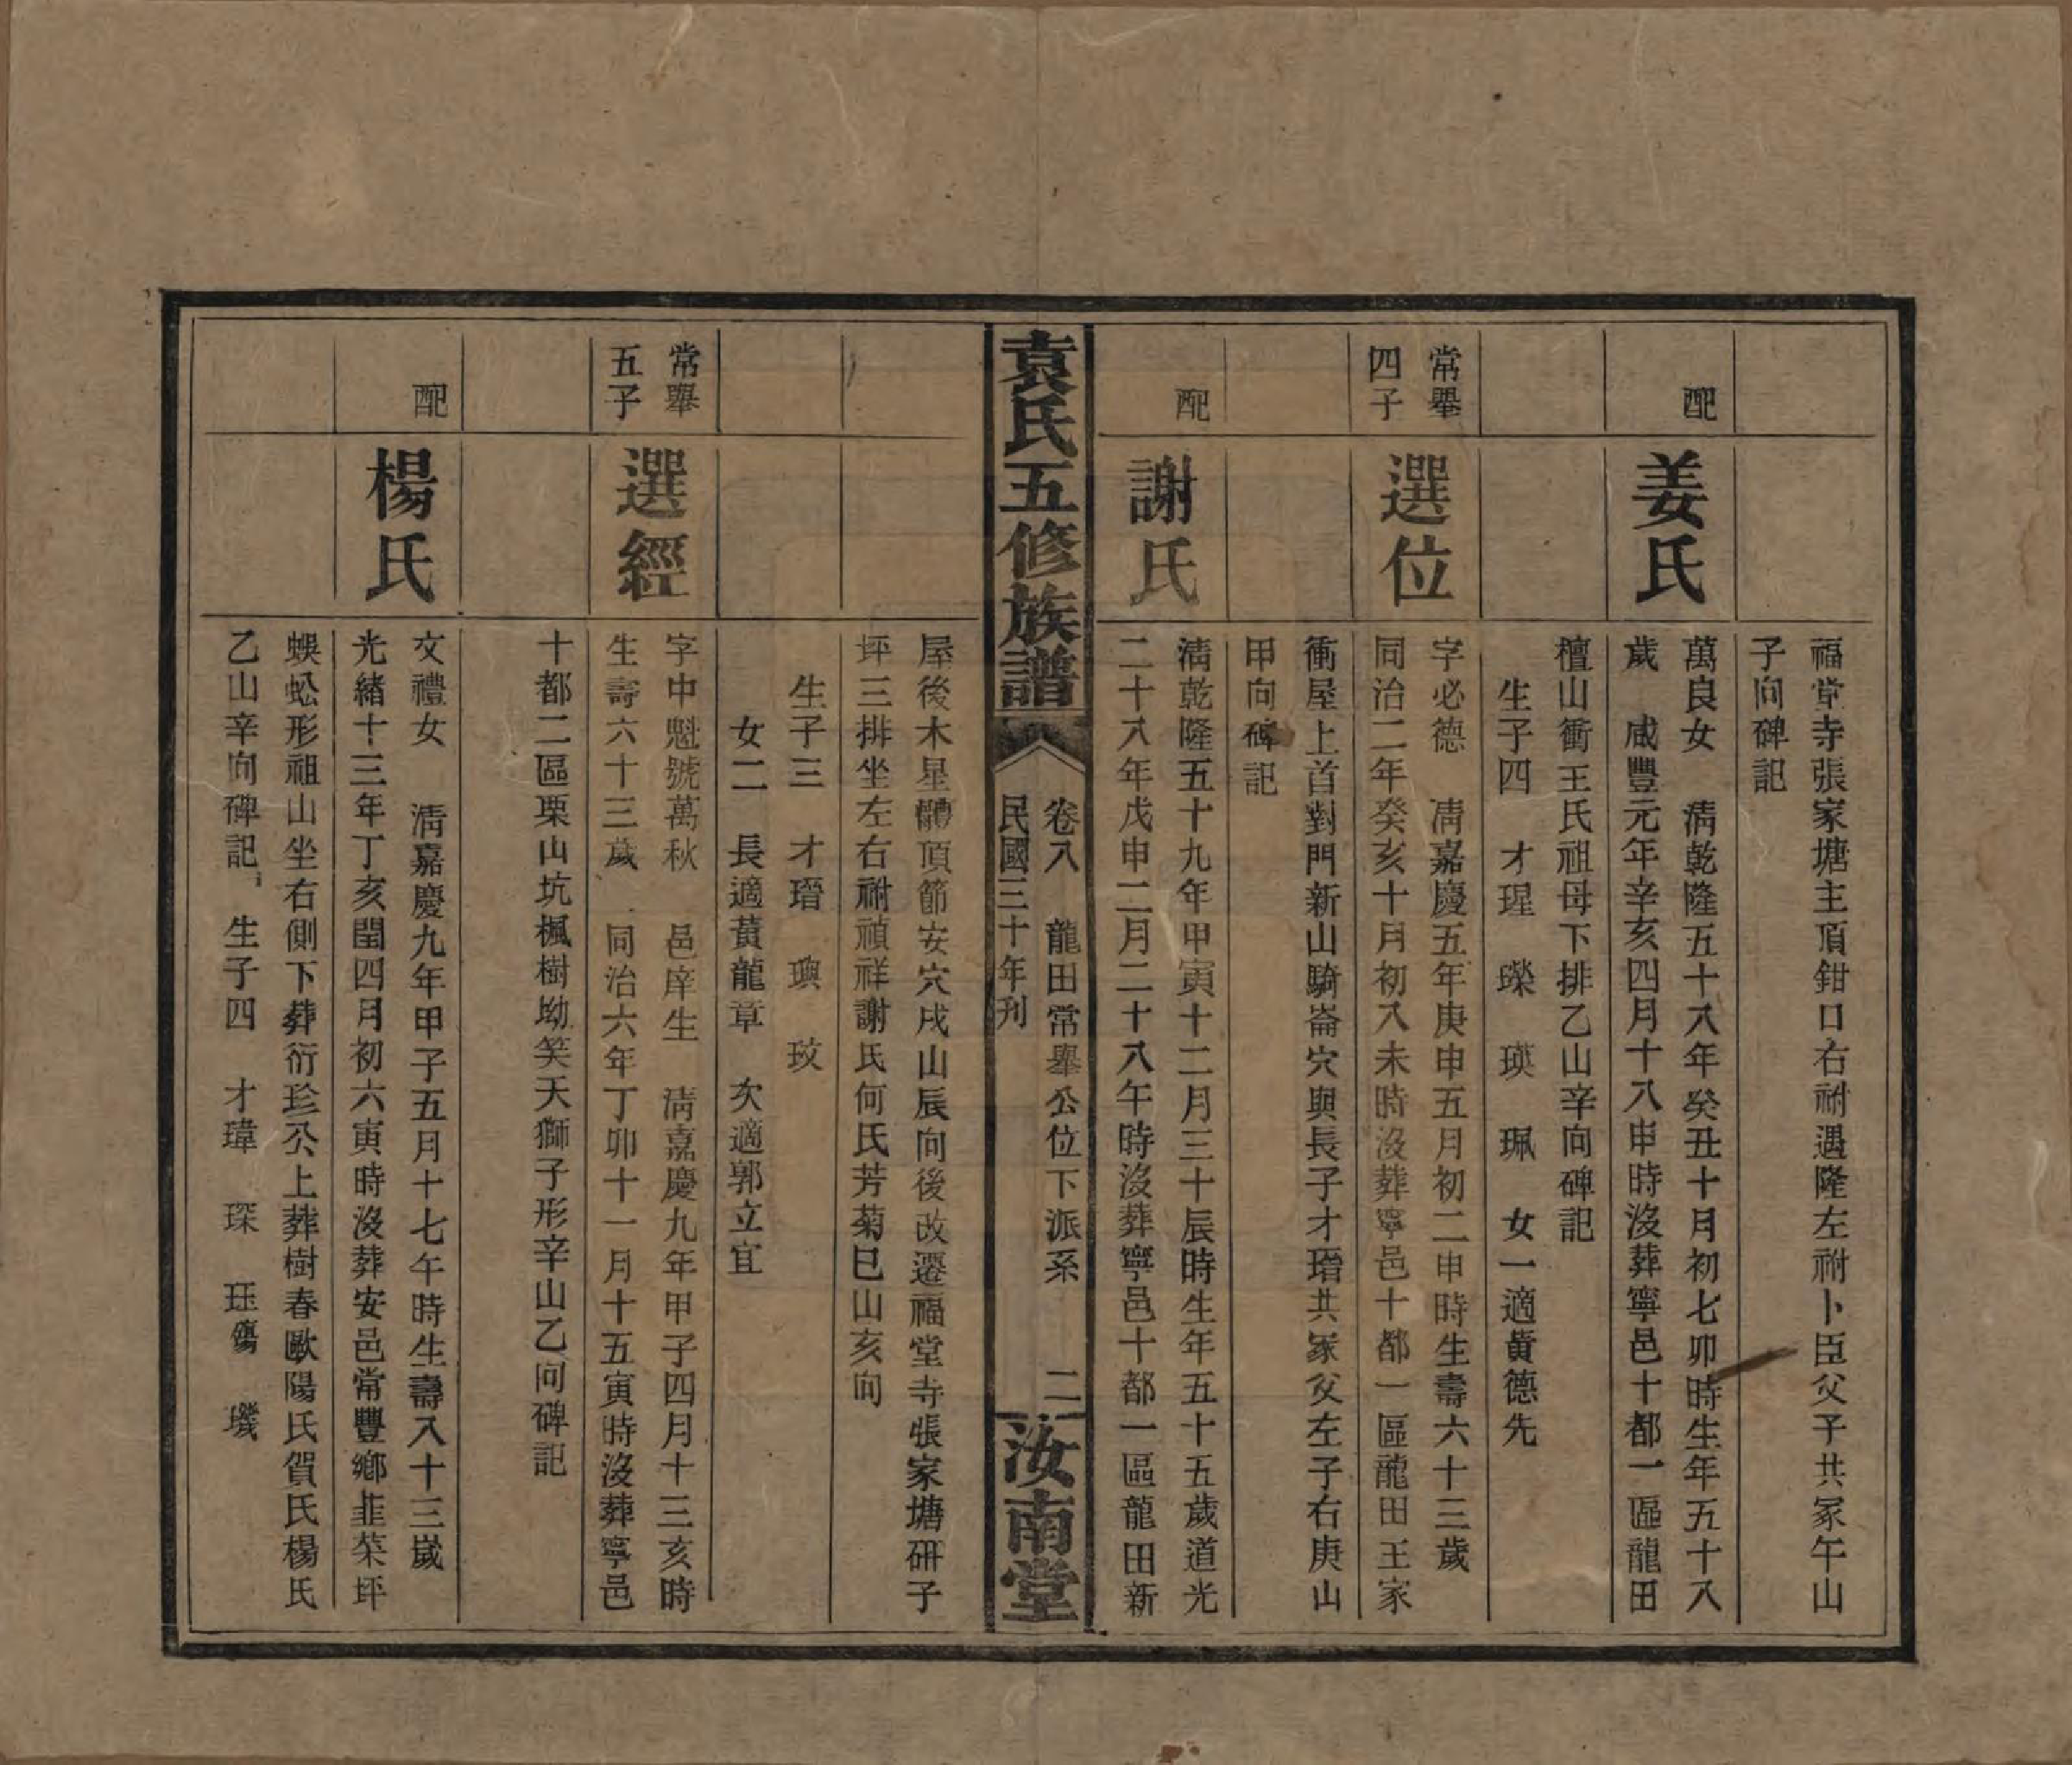 福堂寺張家塘主頂鉗口右祔遇隆左祔卜臣父子共冢午山
子向碑記
配
姜氏
萬良女　清乾隆五十八年癸丑十月初七卯時生年五十八
歲　咸豐元年辛亥四月十八申時沒葬寧邑十都一區龍田
檀山衝王氏祖母下排乙山辛向碑記
生子四　才瑆　瓅　瑛　珮　女一適黃德先
常舉
四子
選位
字必德　清嘉慶五年庚申五月初二申時生壽六十三歲
同治二年癸亥十月初八未時沒葬寧邑十都一區龍田王家
衝屋上首對門新山騎崙穴與長子才瑨共冢父左子右庚山
甲向碑記
配
謝氏
清乾隆五十九年甲寅十二月三十辰時生年五十五歲道光
二十八年戊申二月二十八午時沒葬寧邑十都一區龍田新
袁氏五修族譜
卷八　龍田常舉公位下派系　二
民國三十年刊
汝南堂
屋後木星體頂節安穴戌山辰向後改遷福堂寺張家塘研子
坪三排坐左右祔禎祥謝氏何氏芳菊巳山亥向
生子三　才瑨　璵　玟
女二　長適黃龍章　次適郭立宜
常舉
五子
選經
字中魁號萬秋　邑庠生　清嘉慶九年甲子四月十三亥時
生壽六十三歲　同治六年丁卯十一月十五寅時沒葬寧邑
十都二區栗山坑楓樹坳笑天獅子形辛山乙向碑記
配
楊氏
文禮女　清嘉慶九年甲子五月十七午時生壽八十三歲
光緒十三年丁亥閏四月初六寅時沒葬安邑常豐鄉韭菜坪
蜈蚣形祖山坐右側下葬衍珍公上葬樹春歐陽氏賀氏楊氏
乙山辛向碑記　生子四　才瑋　琛　珏殤　璣